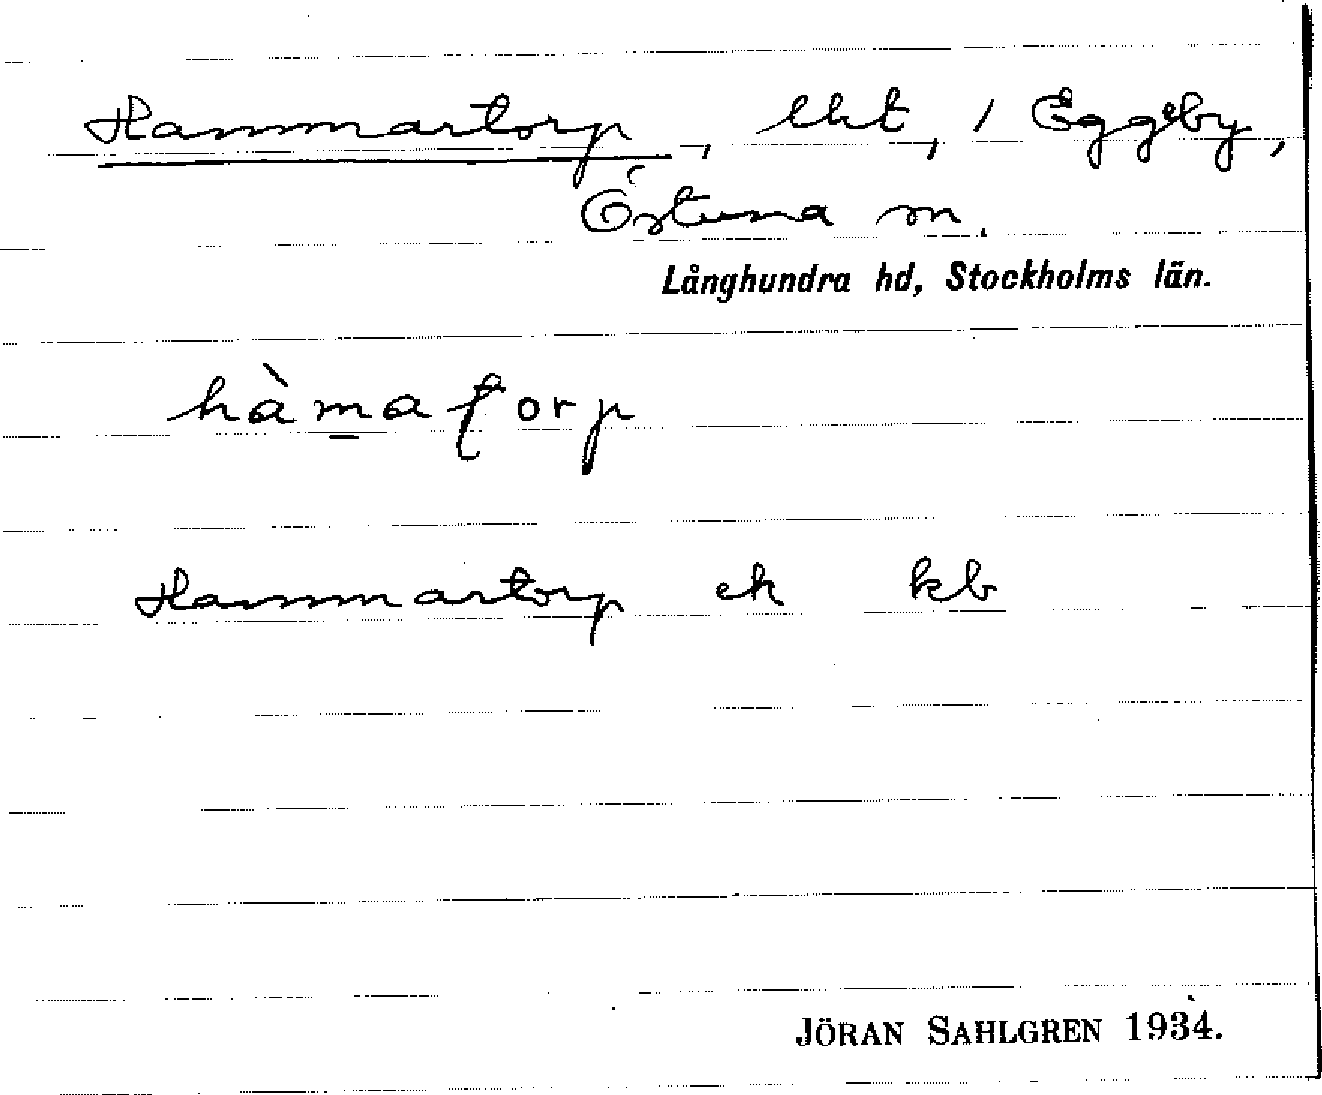 Hammartorp, lht, i Eggeby,
Östuna sn.
Långhundra hd, Stockholms län.
hàmatorp
Hammartorp ek kb
JÖRAN SAHLGREN 1934.